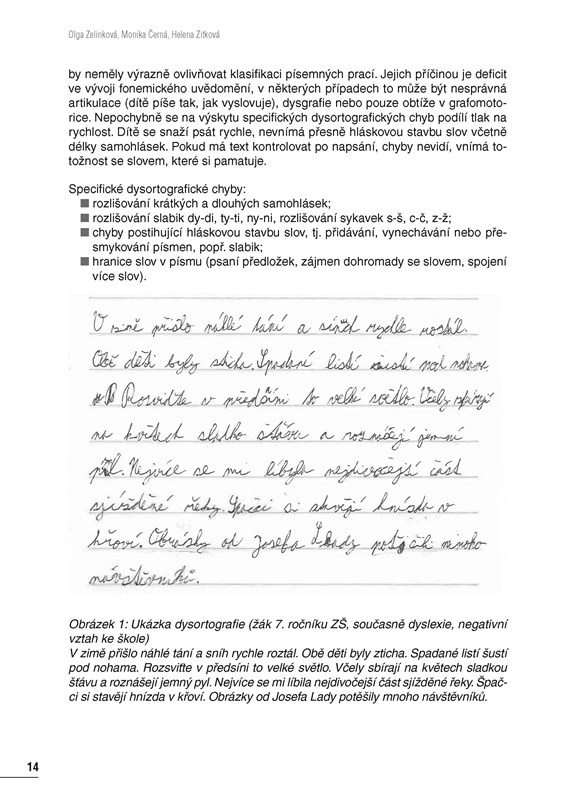 Olga Zelinková, Monika Černá, Helena Zitková
by neměly výrazně ovlivňovat klasifikaci písemných prací. Jejich příčinou je deficit
ve vývoji fonemického uvědomění, v některých případech to může být nesprávná
artikulace (dítě píše tak, jak vyslovuje), dysgrafie nebo pouze obtíže v grafomoto-
rice. Nepochybně se na výskytu specifických dysortografických chyb podílí tlak na
rychlost. Dítě se snaží psát rychle, nevnímá přesně hláskovou stavbu slov včetně
délky samohlásek. Pokud má text kontrolovat po napsání, chyby nevidí, vnímá to-
tožnost se slovem, které si pamatuje.
Specifické dysortografické chyby:
■ rozlišování krátkých a dlouhých samohlásek;
■ rozlišování slabik dy-di, ty-ti, ny-ni, rozlišování sykavek s-š, c-č, z-ž;
■ chyby postihující hláskovou stavbu slov, tj. přidávání, vynechávání nebo pře-
smykování písmen, popř. slabik;
■ hranice slov v písmu (psaní předložek, zájmen dohromady se slovem, spojení
více slov).
V přišlo náhlé tání a rychle
Obě děti byly Spadané listí nohama
v to velké světlo. Včely
na květech a jemní
Nejvíce se mi líbyla část
řeky. si hnízda v
křoví. Obrásky od Josefa mnoho
návštěvníků.
Obrázek 1: Ukázka dysortografie (žák 7. ročníku ZŠ, současně dyslexie, negativní
vztah ke škole)
V zimě přišlo náhlé tání a sníh rychle roztál. Obě děti byly zticha. Spadané listí šustí
pod nohama. Rozsviťte v předsíni to velké světlo. Včely sbírají na květech sladkou
šťávu a roznášejí jemný pyl. Nejvíce se mi líbila nejdivočejší část sjížděné řeky. Špač-
ci si stavějí hnízda v křoví. Obrázky od Josefa Lady potěšily mnoho návštěvníků.
14